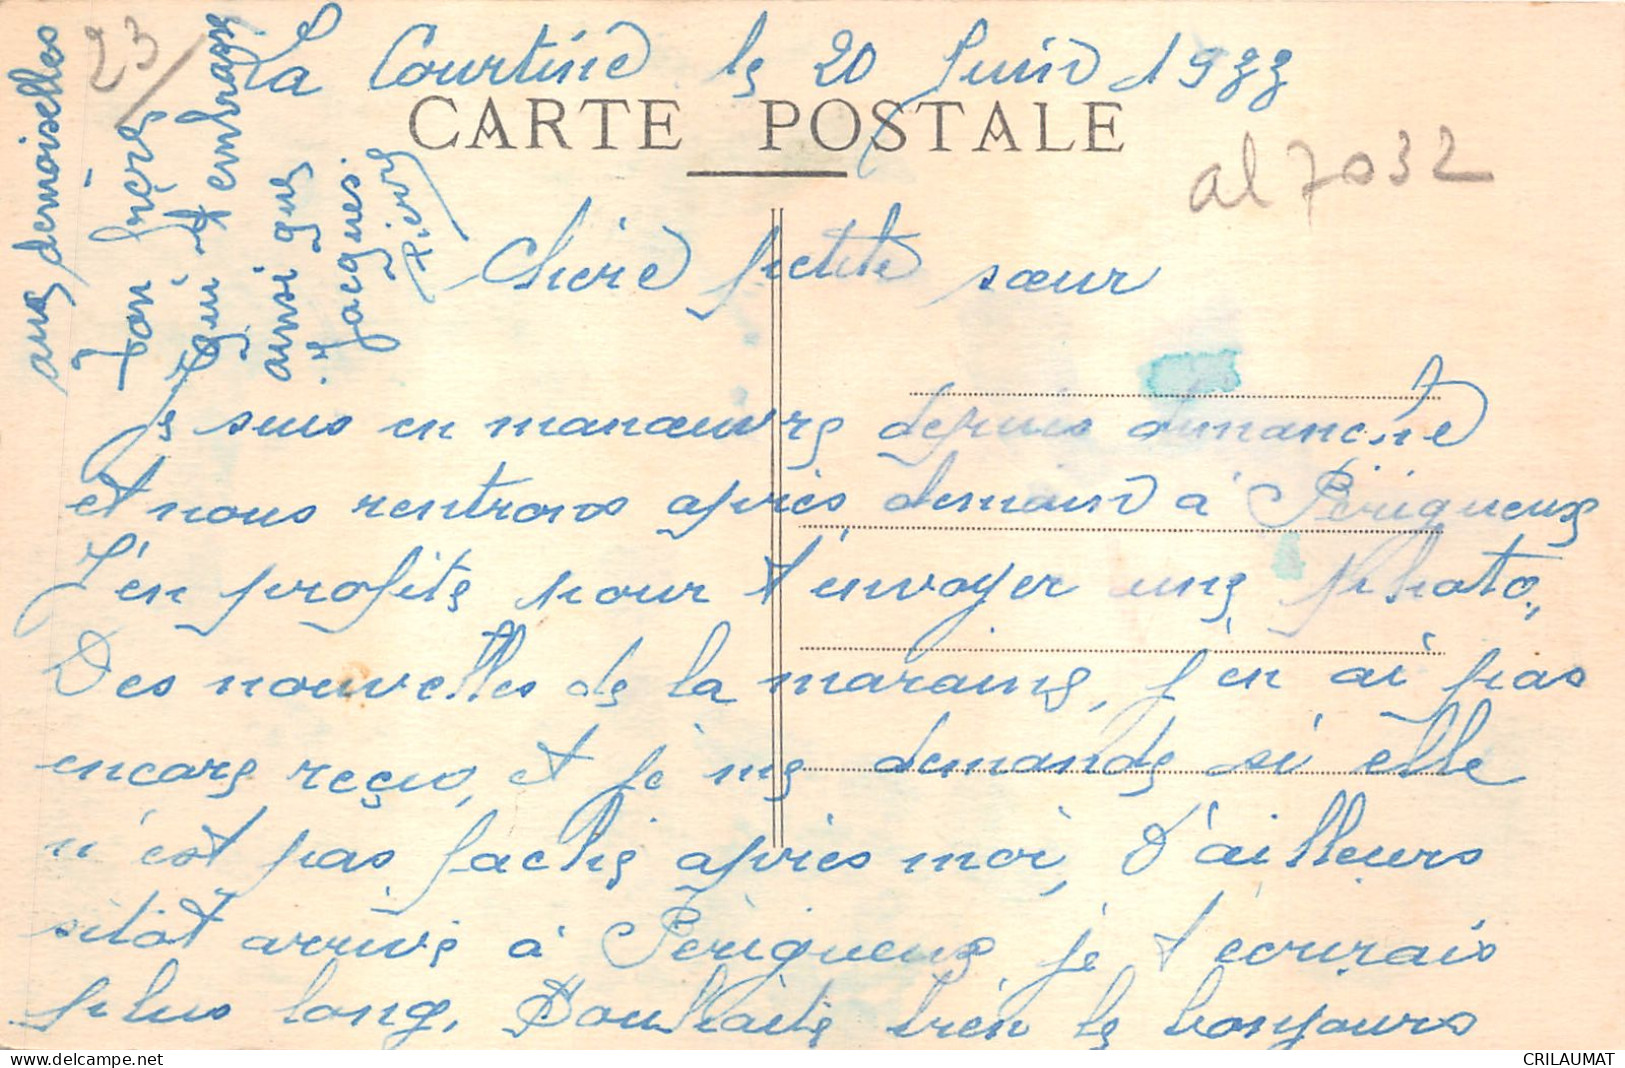 La Courtine le 20 Juin 1933
CARTE POSTALE
23/
al 7032
Chère petite sœur
Je suis en manœuvre depuis dimanche
et nous rentrons après demain à Périgueux
J'en profite pour t'envoyer une photo,
Des nouvelles de la maraine, j'en ai pas
encore reçu, et je me demande si elle
n'est pas fachée après moi, D'ailleurs
sitôt arrivé à Périgueux je t'écrirais
plus long, Souhaite bien le bonjours
aux demoiselles
Ton frère
qui t'embrasse
ainsi que
Jacques.
Pierre
CRILAUMAT